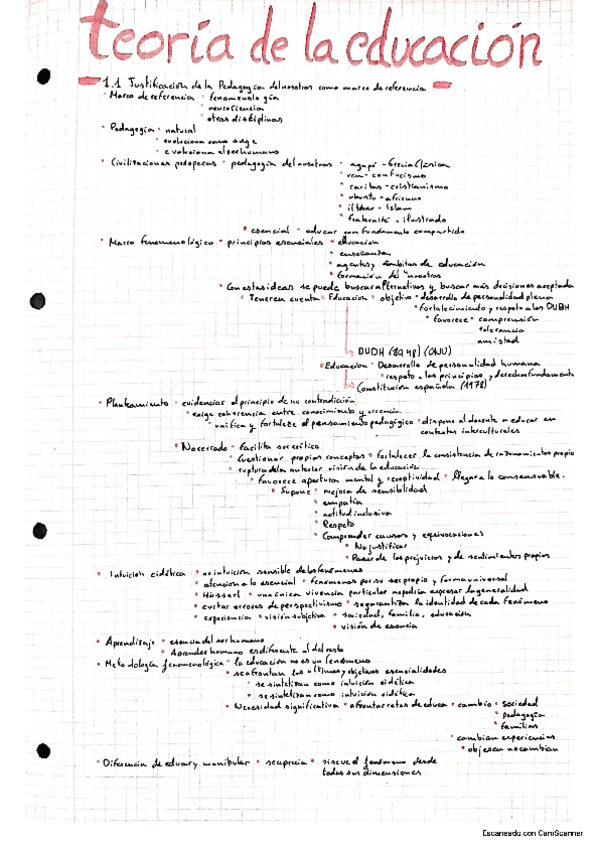 teoría de la educación
1.1 Justificación de la Pedagogía del nosotros como marco de referencia
• Marco de referencia • fenomenología
• neurociencia
• otras disciplinas
• Pedagogía • natural
• evoluciona como surge
• evoluciona al ser humano
• Civilizaciones • pedagogía del nosotros • agapé - Grecia Clásica
• ren - confucismo
• caritas - cristianismo
• ubuntu - africano
• - Islam
• fraternité - ilustrado
• esencial • educar con fundamento compartido
• Marco fenomenológico • principios esenciales • educación
• enseñanza
• agentes y ámbitos de educación
• formación del "nosotros
• Con estas ideas se puede buscar alternativas y buscar más decisiones aceptada
• Tener en cuenta • Educación • objetivo • desarrollo de personalidad plena
• fortalecimiento y respeto a los DUDH
• favorece • comprensión
tolerancia
amistad
DUDH (1948) (ONU)
• Educación • Desarrollo de personalidad humana
• respeto a los principios y derechos fundament
Constitución española (1978)
• Planteamiento • evidenciar el principio de no contradicción
• exige coherencia entre conocimiento y creencia
• unifica y fortalece el pensamiento pedagógico • dispone al docente a educar en
contextos interculturales
• No cerrado • Facilita ser crítico
• Cuestionar propios conceptos • fortalecer la consistencia de razonamientos propio
• ruptura de la anterior visión de la educación
• Favorece apertura mental y receptividad • llegar a lo consensuable.
• Supone • mejora de sensibilidad
• empatía
• actitud inclusiva
• Respeto
• Comprender causas y equivocaciones
• No justificar
• Pasar de los prejuicios y de sentimientos propios
• Intuición eidética • no intuición sensible de los fenómenos
• atención a lo esencial • Fenómenos por su ser propio y forma universal
• Hüsserl • una única vivencia particular no podría expresar la generalidad
• evitar errores de perspectivismo • se garantiza la identidad de cada fenómeno
• experiencia • visión subjetiva • sociedad, familia, educación
• visión de esencia
• Aprendizaje • esencia del ser humano
• Aprender humano es diferente al del resto
• Metodología fenomenológica • la educación no es un fenómeno
• se afrontan los últimos y objetivos esencialidades
• se sintetizan como intuición eidética
• se sintetizan como intuición eidética
• Necesidad significativa • afrontar retos de educa • cambio • sociedad
• pedagogía
• familias
• cambian experiencias
• no cambian
• Diferencia de educar y manipular • se aprecia • si se ve el fenómeno desde
todas sus dimensiones
Escaneado con CamScanner